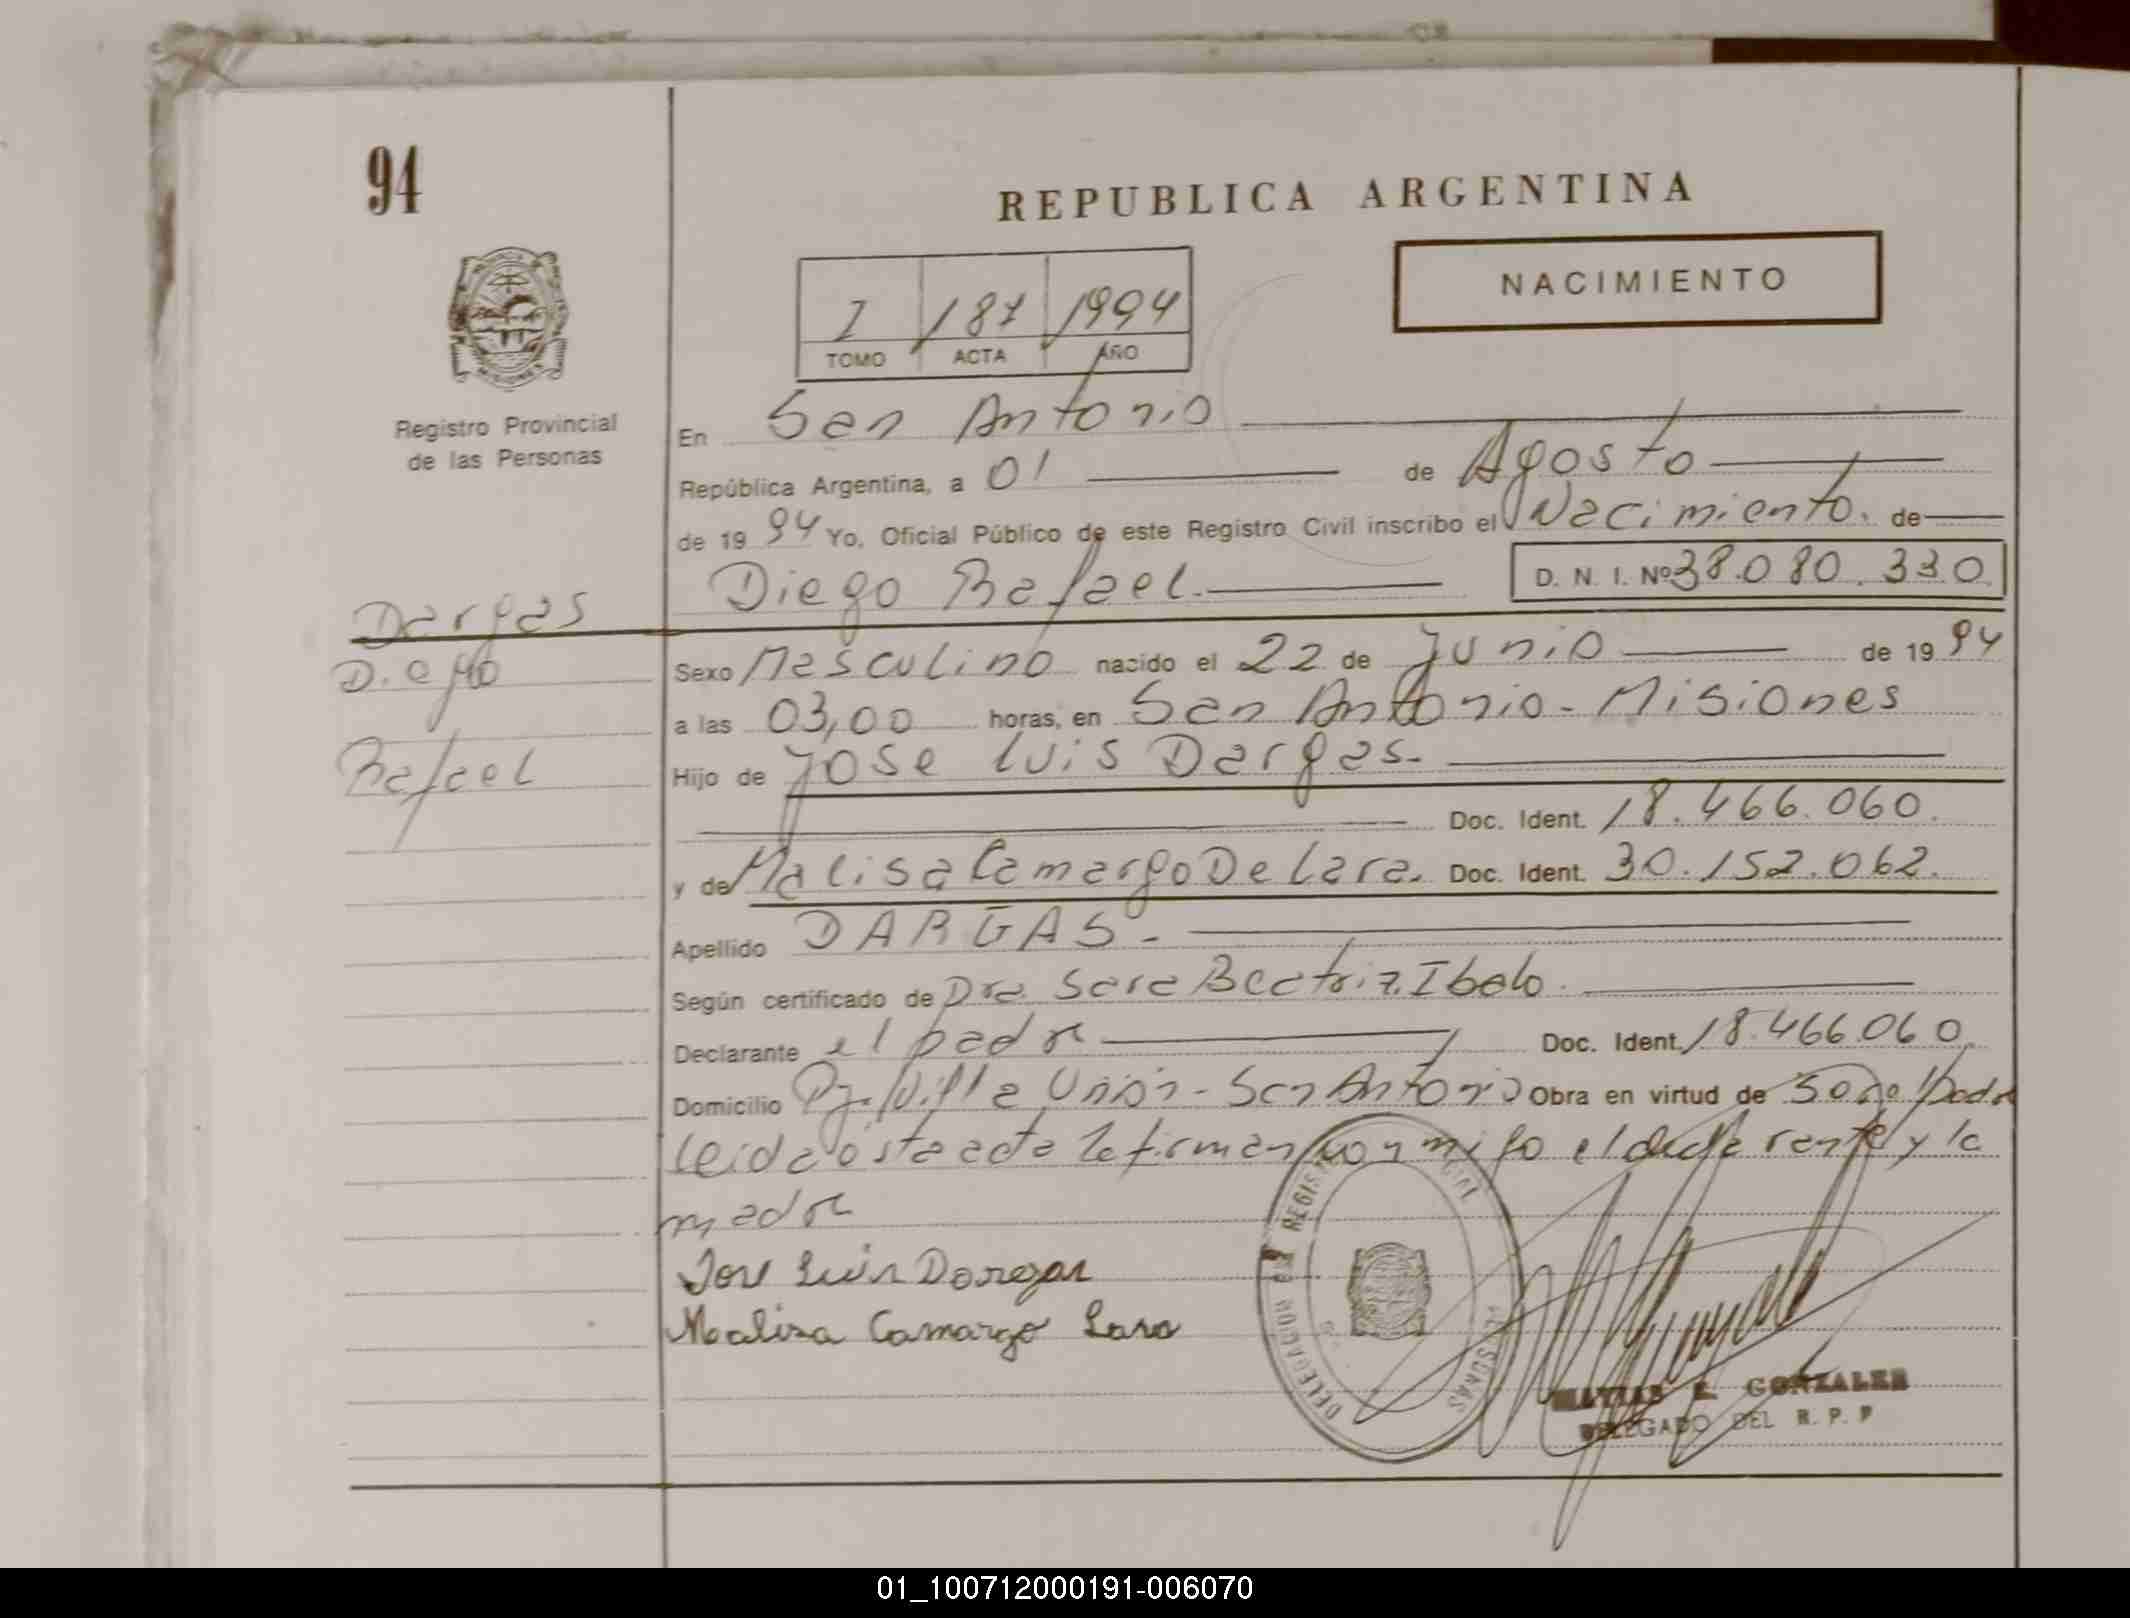 94
REPUBLICA ARGENTINA
NACIMIENTO
I 187 1994
TOMO ACTA AÑO
Registro Provincial
de las Personas
En San Antonio
República Argentina, a 01 de Agosto
de 1994 Yo, Oficial Público de este Registro Civil inscribo el Nacimiento. de
Diego Rafael. D. N. I. Nº 38.080.330.
Dargas
Diego
Rafael
Sexo Masculino nacido el 22 de Junio de 1994
a las 03,00 horas, en San Antonio - Misiones
Hijo de Jose Luis Dargas.
Doc. Ident. 18.466.060.
y de Malisa Camargo De Lara. Doc. Ident. 30.152.062.
Apellido DARGAS -
Según certificado de Dra. Sara Beatriz
Declarante el padre Doc. Ident. 18.466.060.
Domicilio Villa Unión - San Antonio Obra en virtud de
Leida ésta acta la firman conmigo el declarante y la
madre
Jose Luis Dargas
Malisa Camargo Lara
DELEGACION REGIS
MATIAS GONZALEZ
DELEGADO DEL R. P. P
01_100712000191-006070